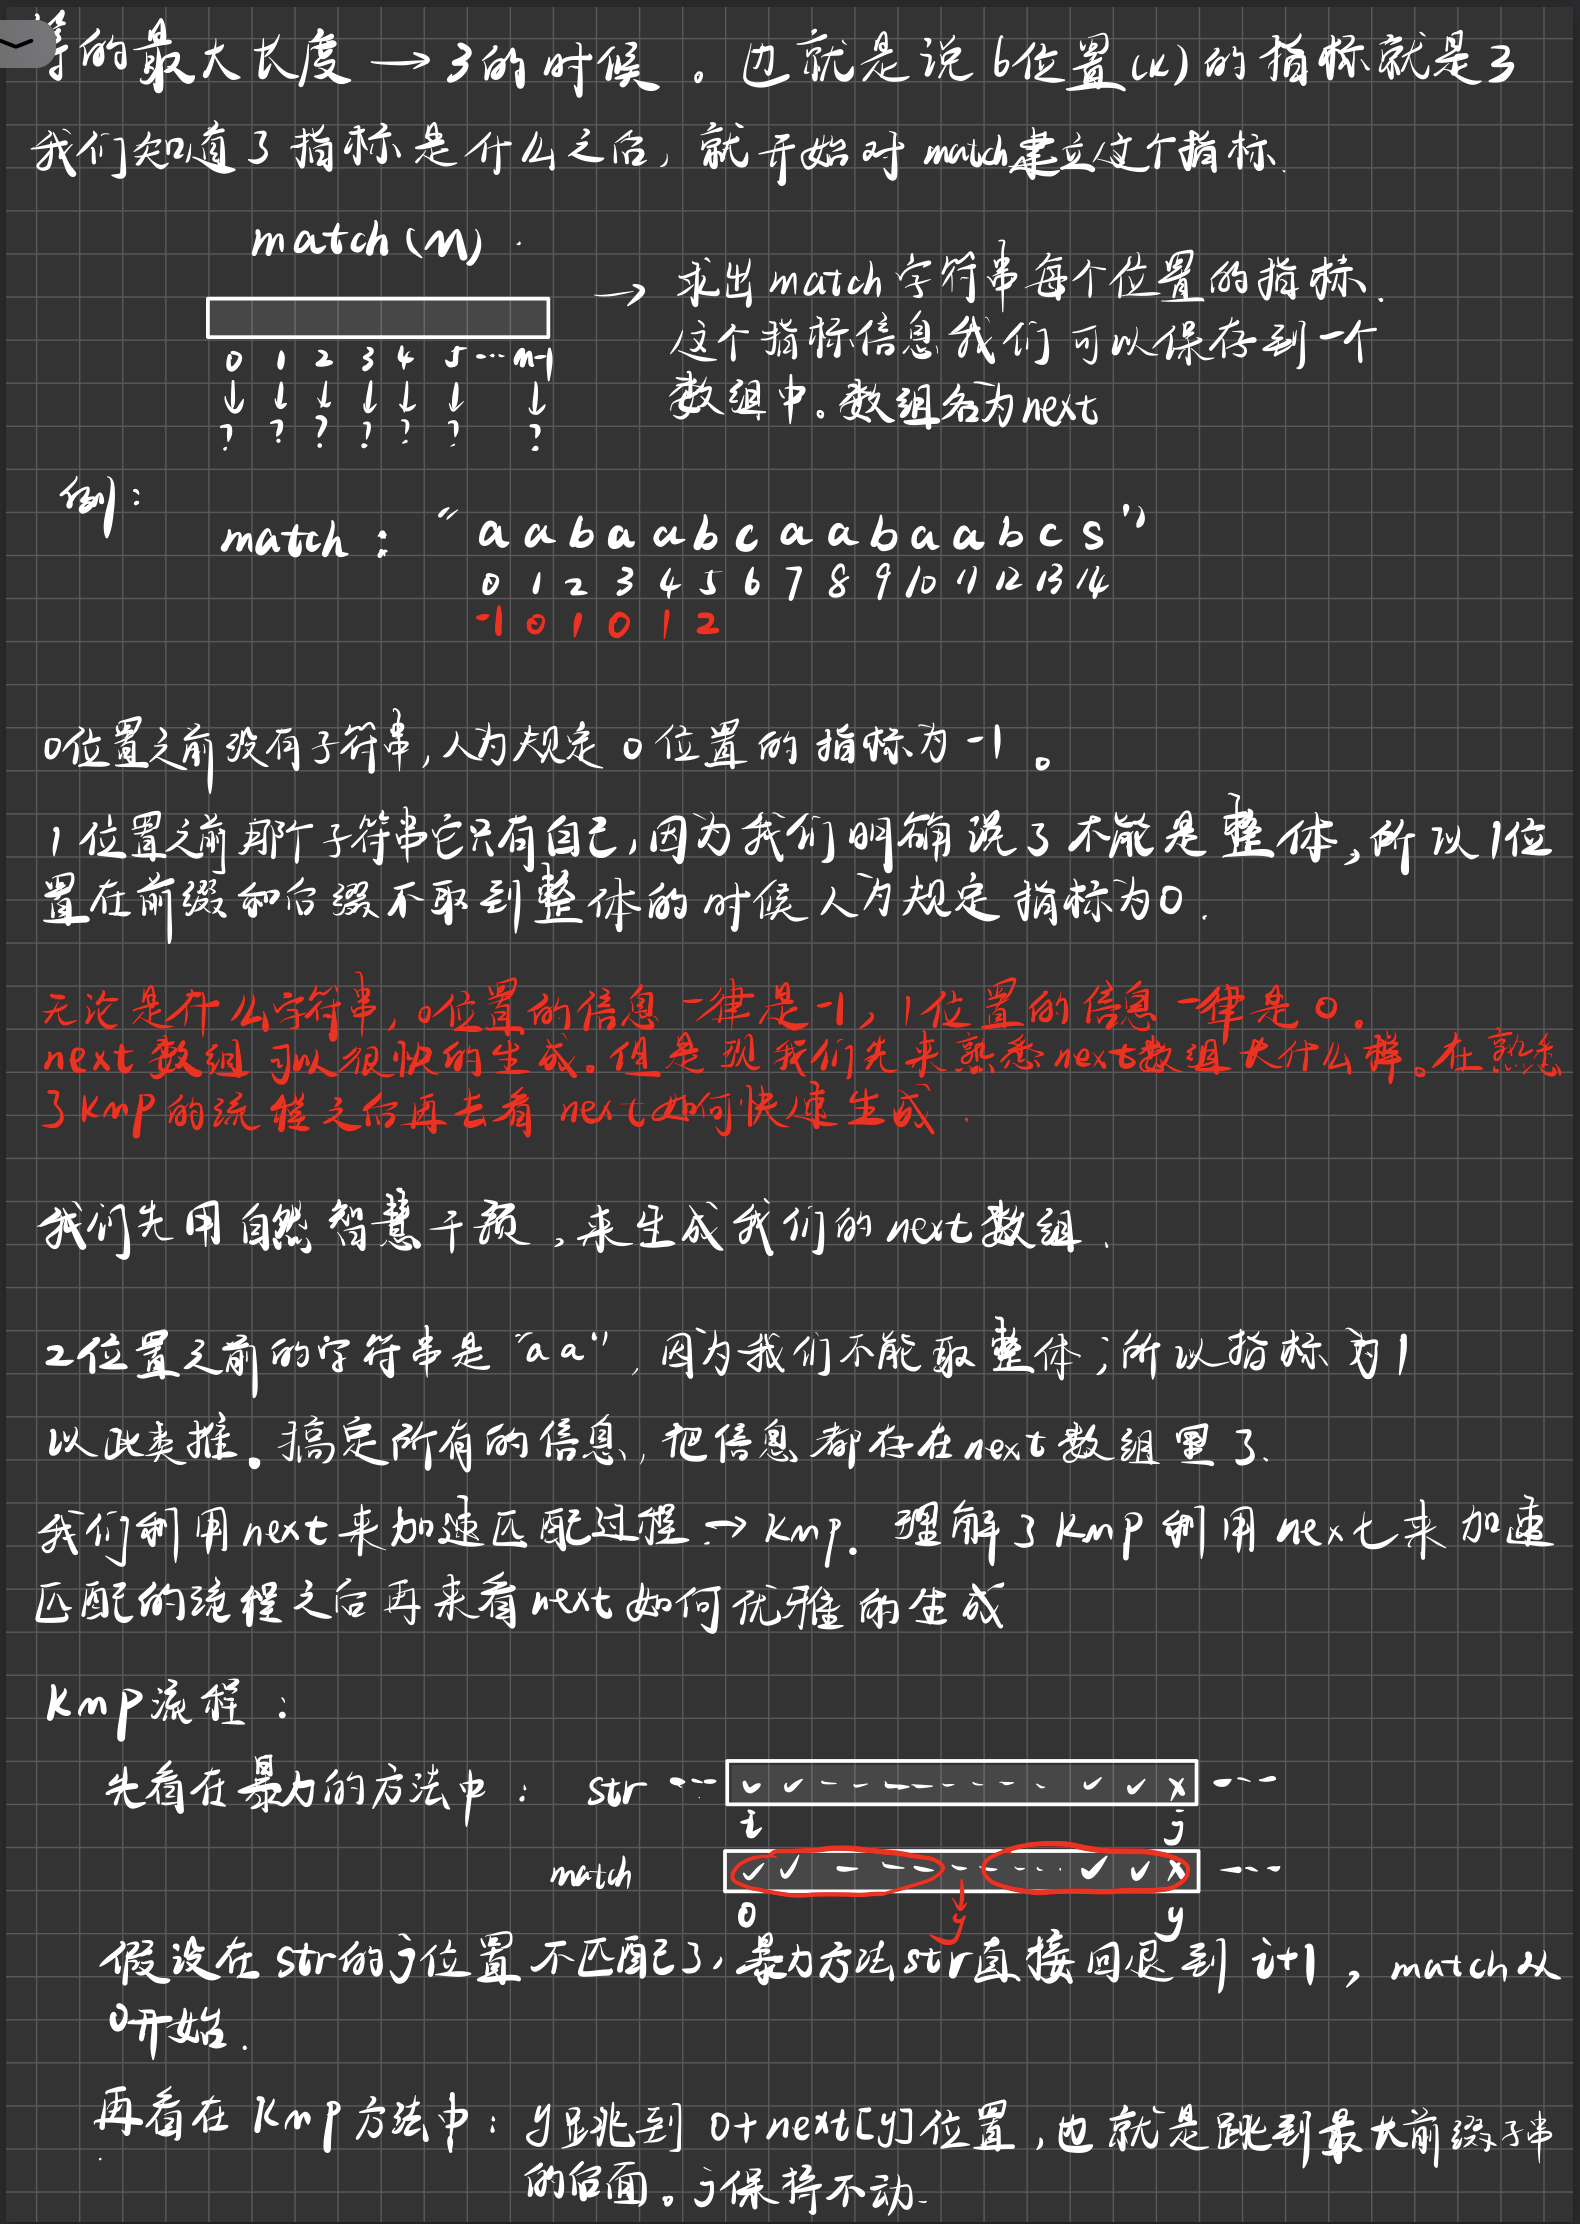 等的最大长度 → 3的时候。也就是说b位置(k)的指标就是3
我们知道了指标是什么之后,就开始对match建立这个指标.
match(m)
→ 求出match字符串每个位置的指标.
这个指标信息我们可以保存到一个
数组中。数组名为next
0 1 2 3 4 5 ... m-1
↓ ↓ ↓ ↓ ↓ ↓ ↓
? ? ? ? ? ? ?
例:
match : "aabaabcaabaabcs"
0 1 2 3 4 5 6 7 8 9 10 11 12 13 14
-1 0 1 0 1 2
0位置之前没有子符串,人为规定0位置的指标为-1。
1位置之前那个子符串它只有自己,因为我们明确说了不能是整体,所以1位
置在前缀和后缀不取到整体的时候人为规定指标为0.
无论是什么字符串,0位置的信息一律是-1,1位置的信息一律是0.
next数组可以很快的生成。但是现我们先来熟悉next数组大什么样。在熟悉
了Kmp的流程之后再去看next如何快速生成.
我们先用自然智慧干预,来生成我们的next数组.
2位置之前的字符串是"aa",因为我们不能取整体;所以指标为1
以此类推。搞定所有的信息,把信息都存在next数组里了.
我们利用next来加速匹配过程→Kmp.理解了Kmp利用next来加速
匹配的流程之后再来看next如何优雅的生成
Kmp流程:
先看在暴力的方法中: str
i j
match
0 y y
假设在str的j位置不匹配了,暴力方法str直接回退到i+1,match从
0开始.
再看在Kmp方法中:y跳到0+next[y]位置,也就是跳到最大前缀子串
的后面。j保持不动.